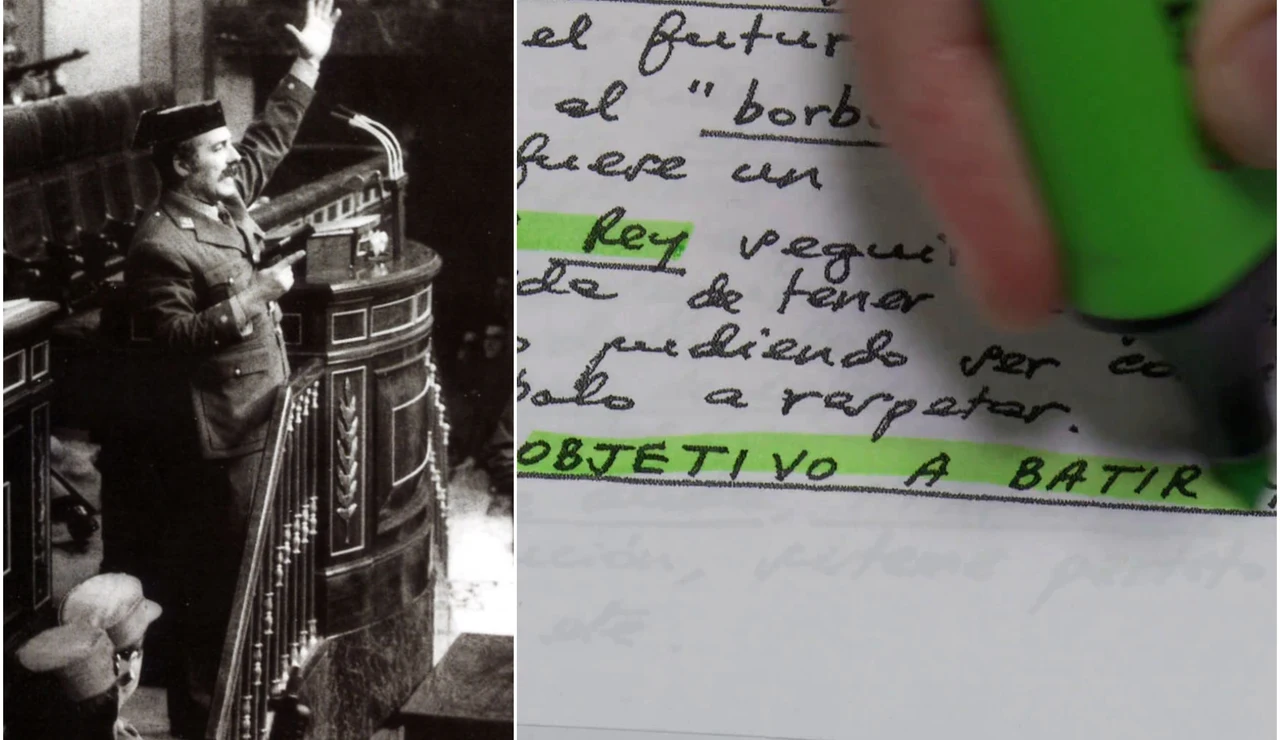 el futur
el "borb
fuese un
Rey segui
de de tener
o pudiendo ser co
bolo a respetar.
OBJETIVO A BATIR